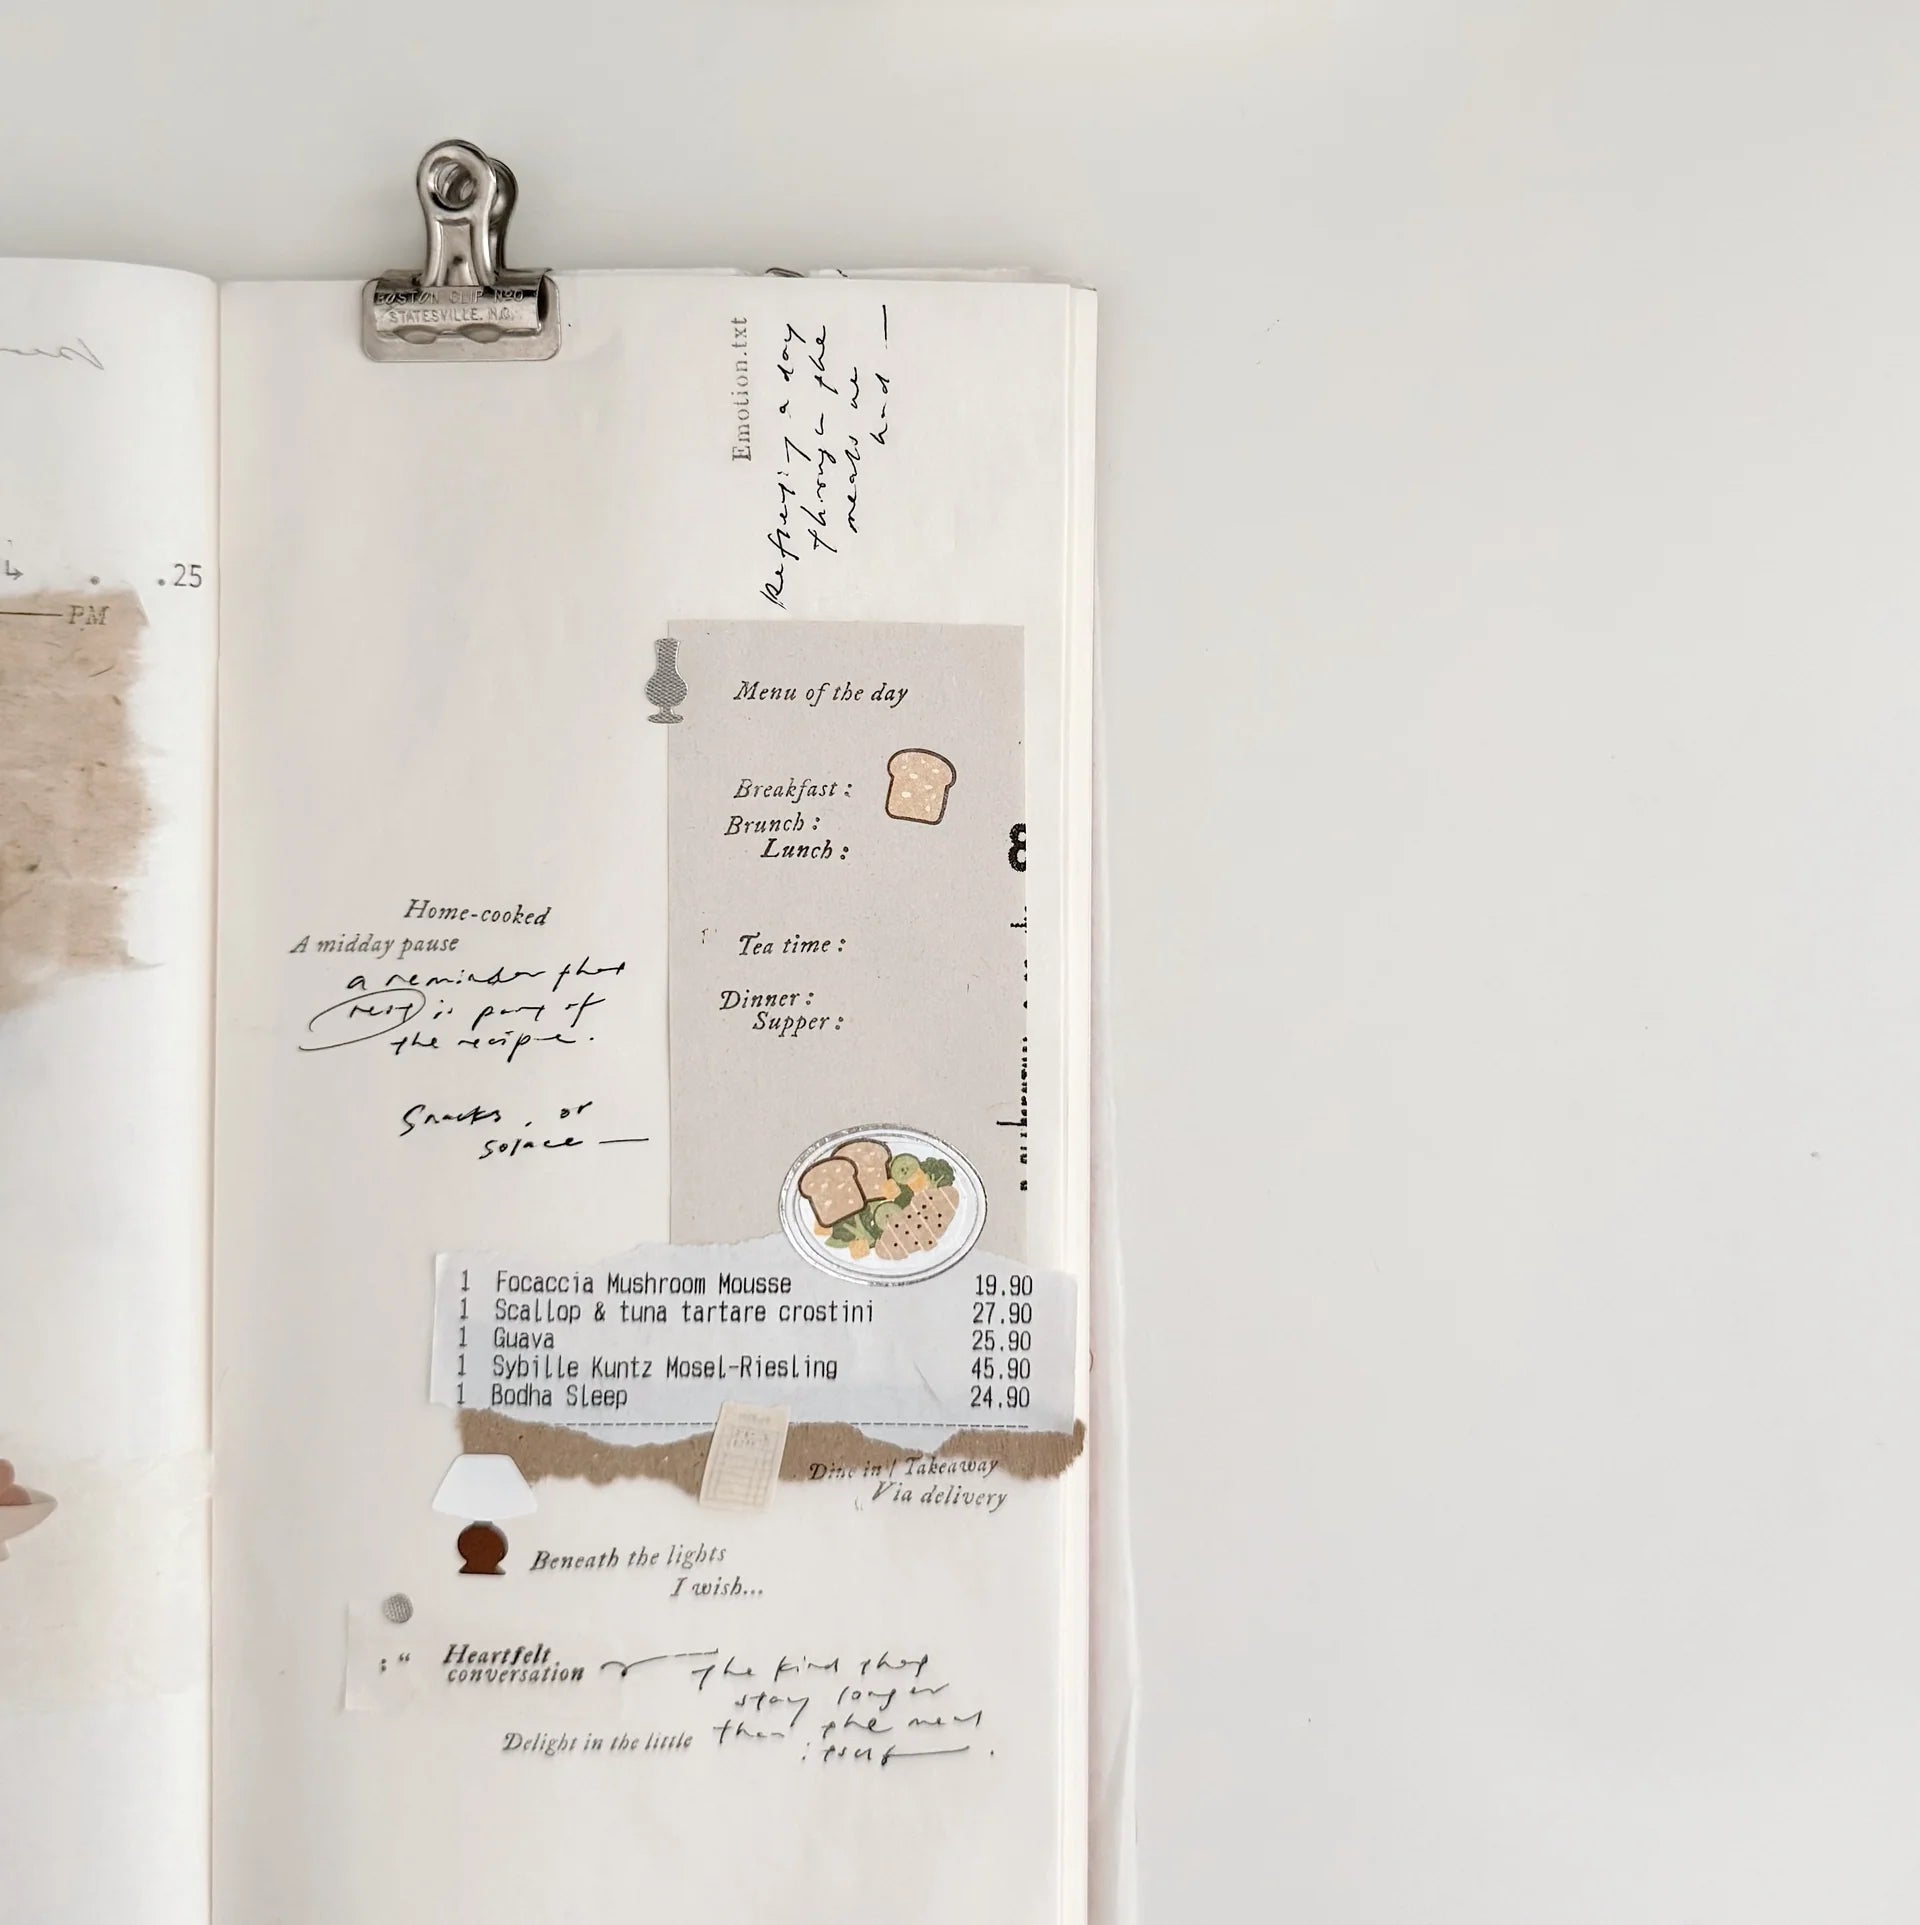 BOSTON CLIP Nº0
STATESVILLE. N.C.
Emotion.txt
a day
through the
meals we
had —
.25
PM
Menu of the day
Breakfast :
Brunch :
Lunch :
8
Tea time :
Dinner :
Supper :
Home-cooked
A midday pause
a reminder that
rest is part of
the recipe.
Snacks, or
solace —
1 Focaccia Mushroom Mousse 19.90
1 Scallop & tuna tartare crostini 27.90
1 Guava 25.90
1 Sybille Kuntz Mosel-Riesling 45.90
1 Bodha Sleep 24.90
Dine in / Takeaway
Via delivery
Beneath the lights
I wish...
: “ Heartfelt
conversation
the kind that
stay longer
than the meal
itself — .
Delight in the little